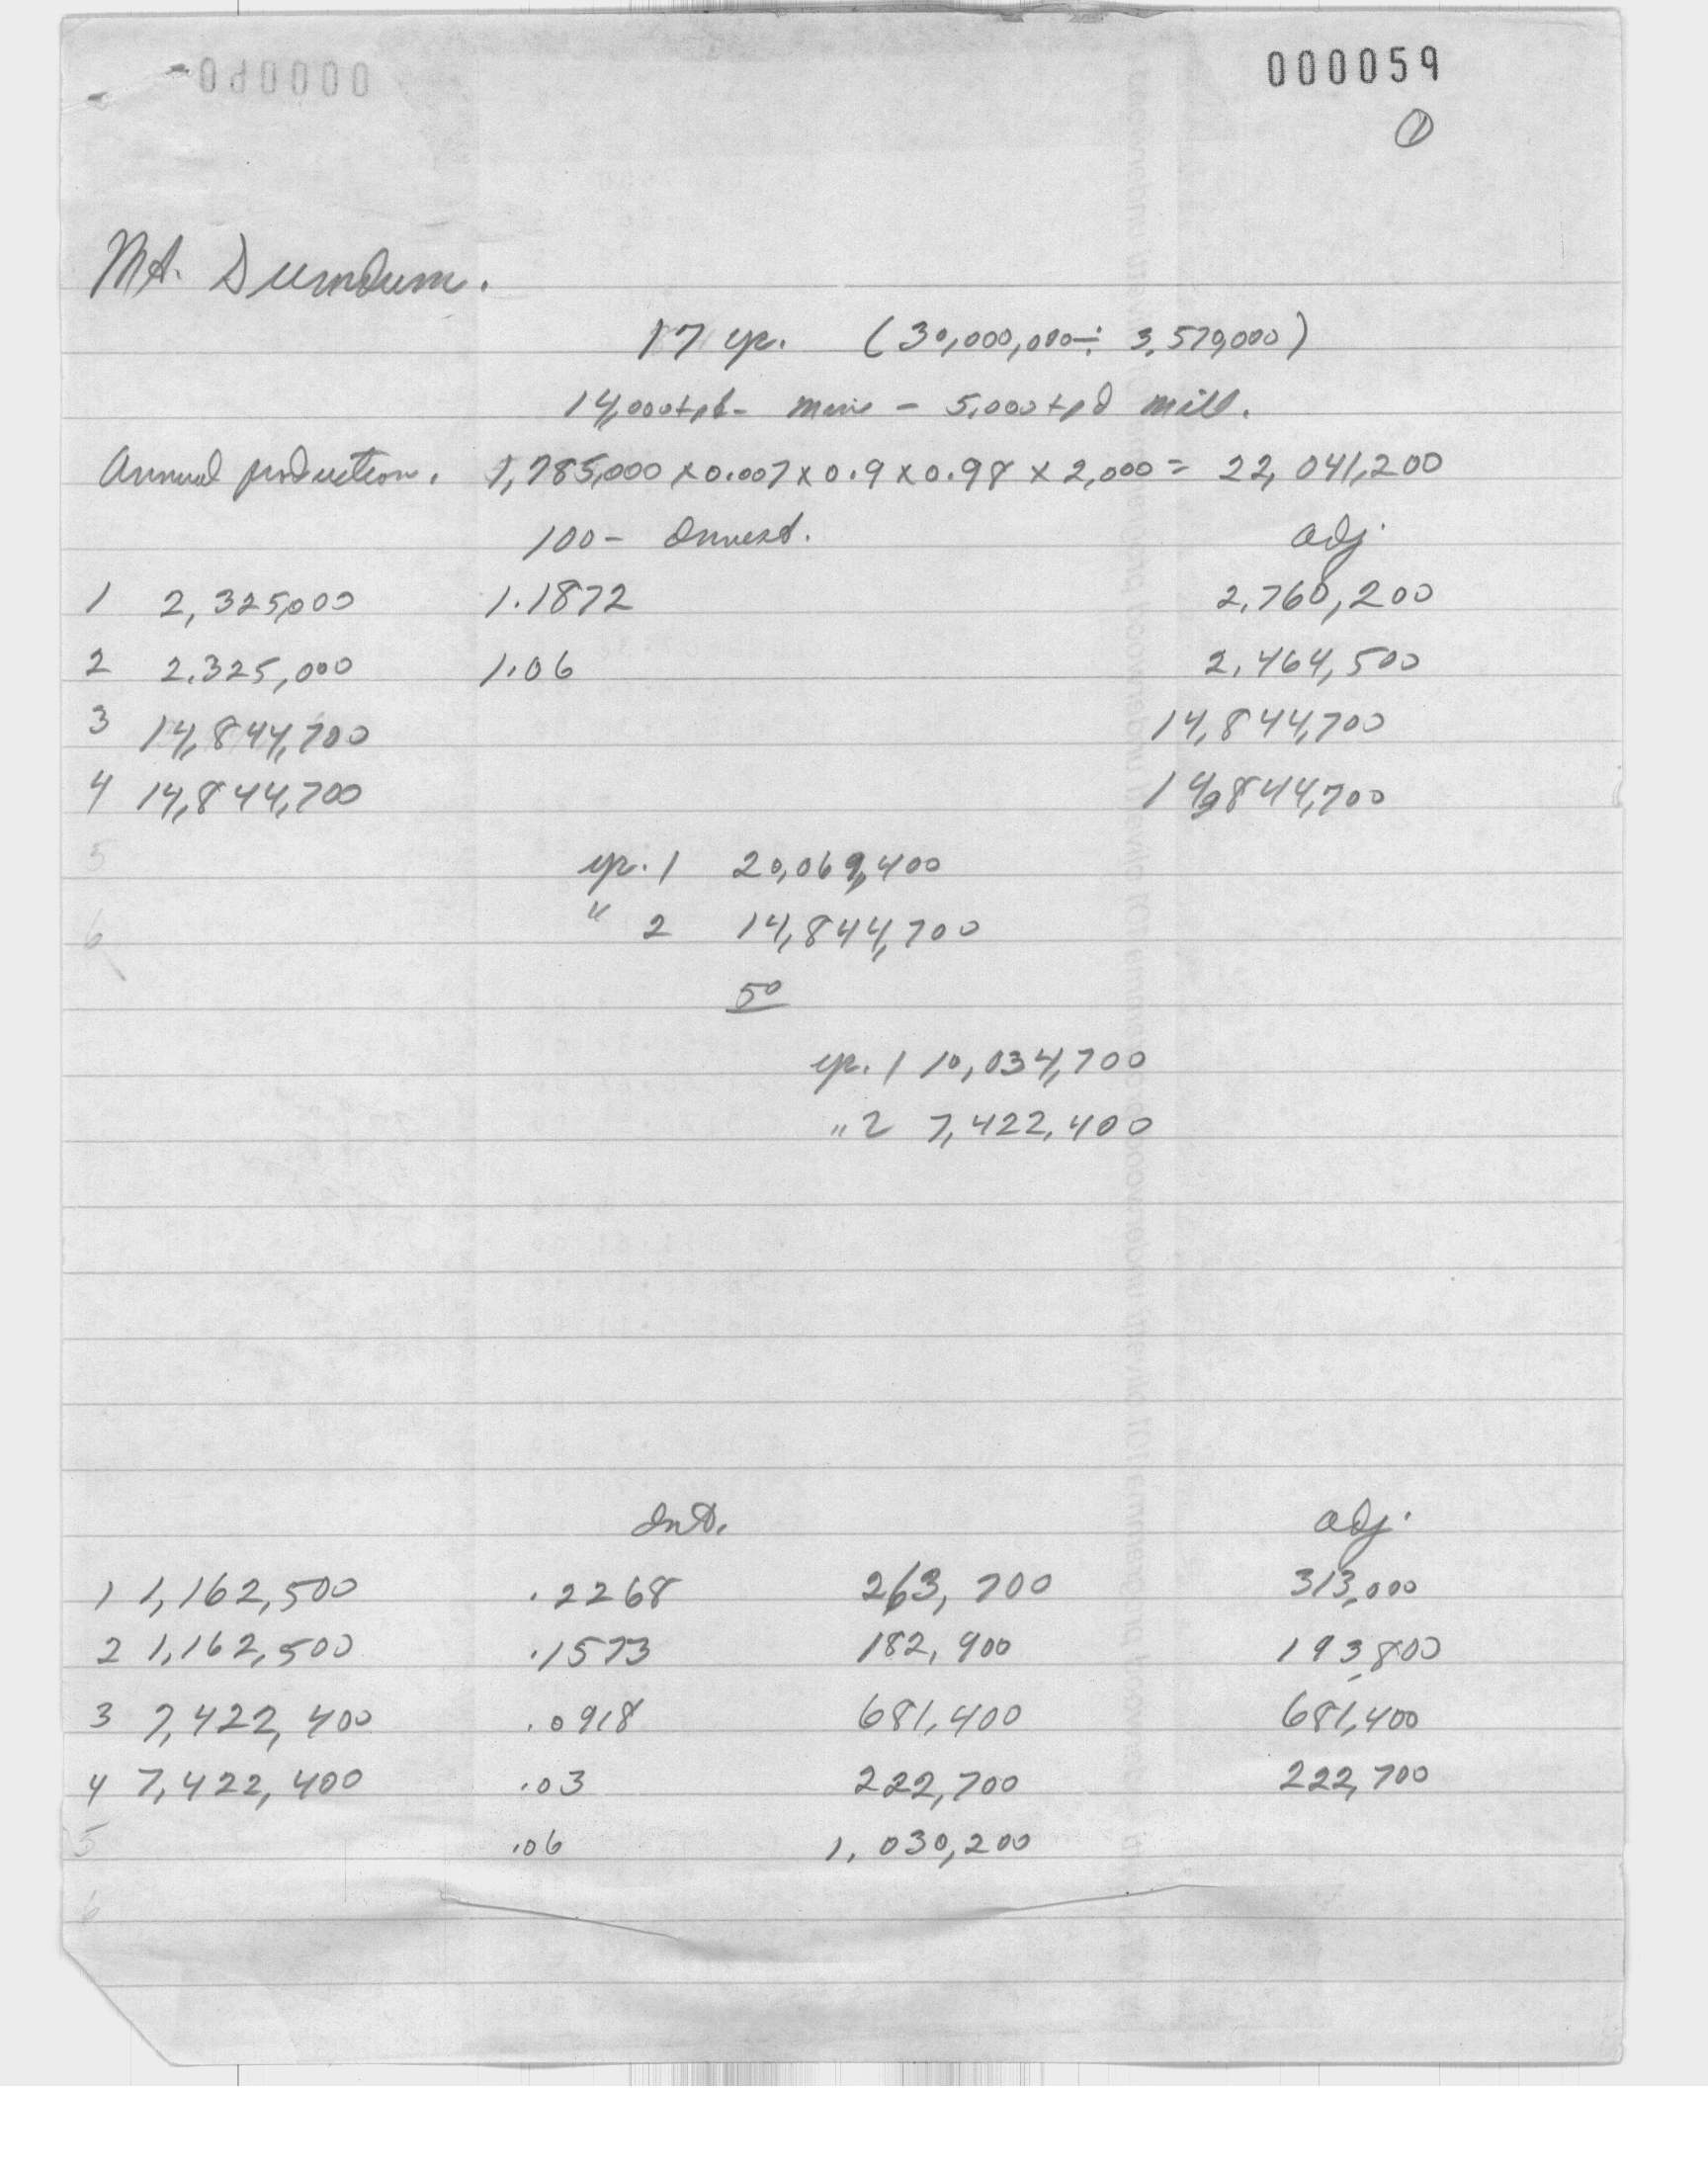 000059
1
Mt. Dumdum.
17 yr. (30,000,000 ÷ 3,570,000)
14,000 tpd - mine - 5,000 tpd mill.
Annual production. 1,785,000 x 0.007 x 0.9 x 0.98 x 2,000 = 22,041,200
100 - Invest. adj.
1 2,325,000 1.1872 2,760,200
2 2,325,000 1.06 2,464,500
3 14,844,700 14,844,700
4 14,844,700 14,844,700
5
yr. 1 20,069,400
6 " 2 14,844,700
50
yr. 1 10,034,700
" 2 7,422,400
Int. adj.
1 1,162,500 .2268 263,700 313,000
2 1,162,500 .1573 182,900 193,800
3 7,422,400 .0918 681,400 681,400
4 7,422,400 .03 222,700 222,700
5 .06 1,030,200
6